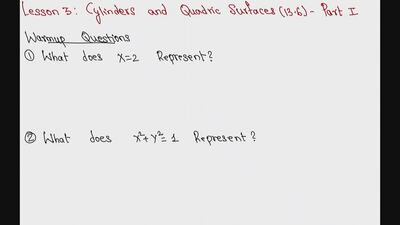 Lesson 3: Cylinders and Quadric Surfaces (13.6) - Part I
Warmup Questions
① What does x=2 Represent?
② What does x²+y²=1 Represent?